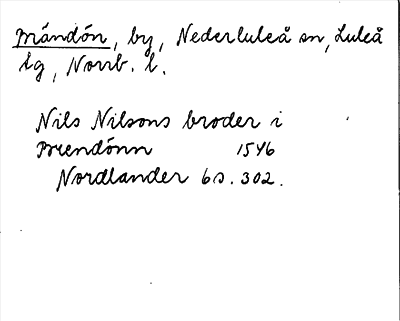 Måndön, by, Nederluleå sn, Luleå
tg, Norrb. l.
Nils Nilsons broder i
Mendönn 1546
Nordlander 6 s. 302.